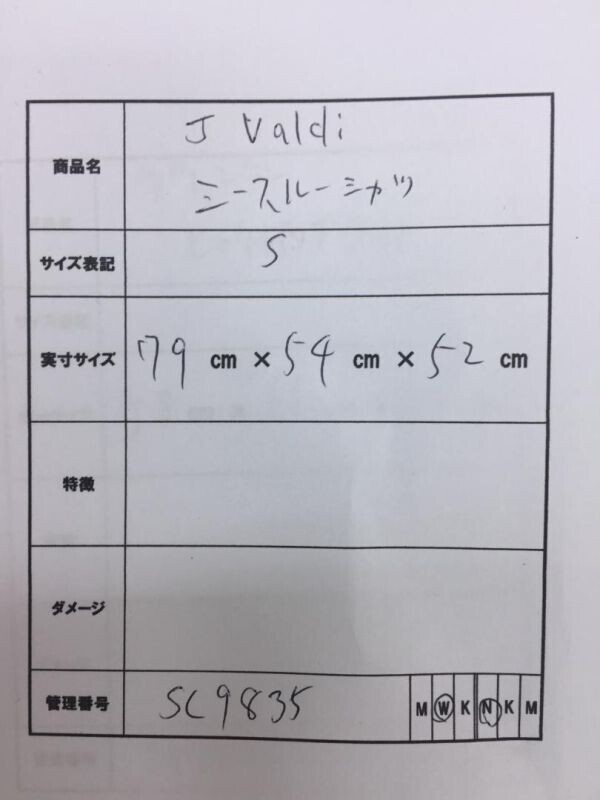 商品名 J Valdi
シースルーシャツ
サイズ表記 S
実寸サイズ 79 cm × 54 cm × 52 cm
特徴
ダメージ
管理番号 SC9835 M W K N K M